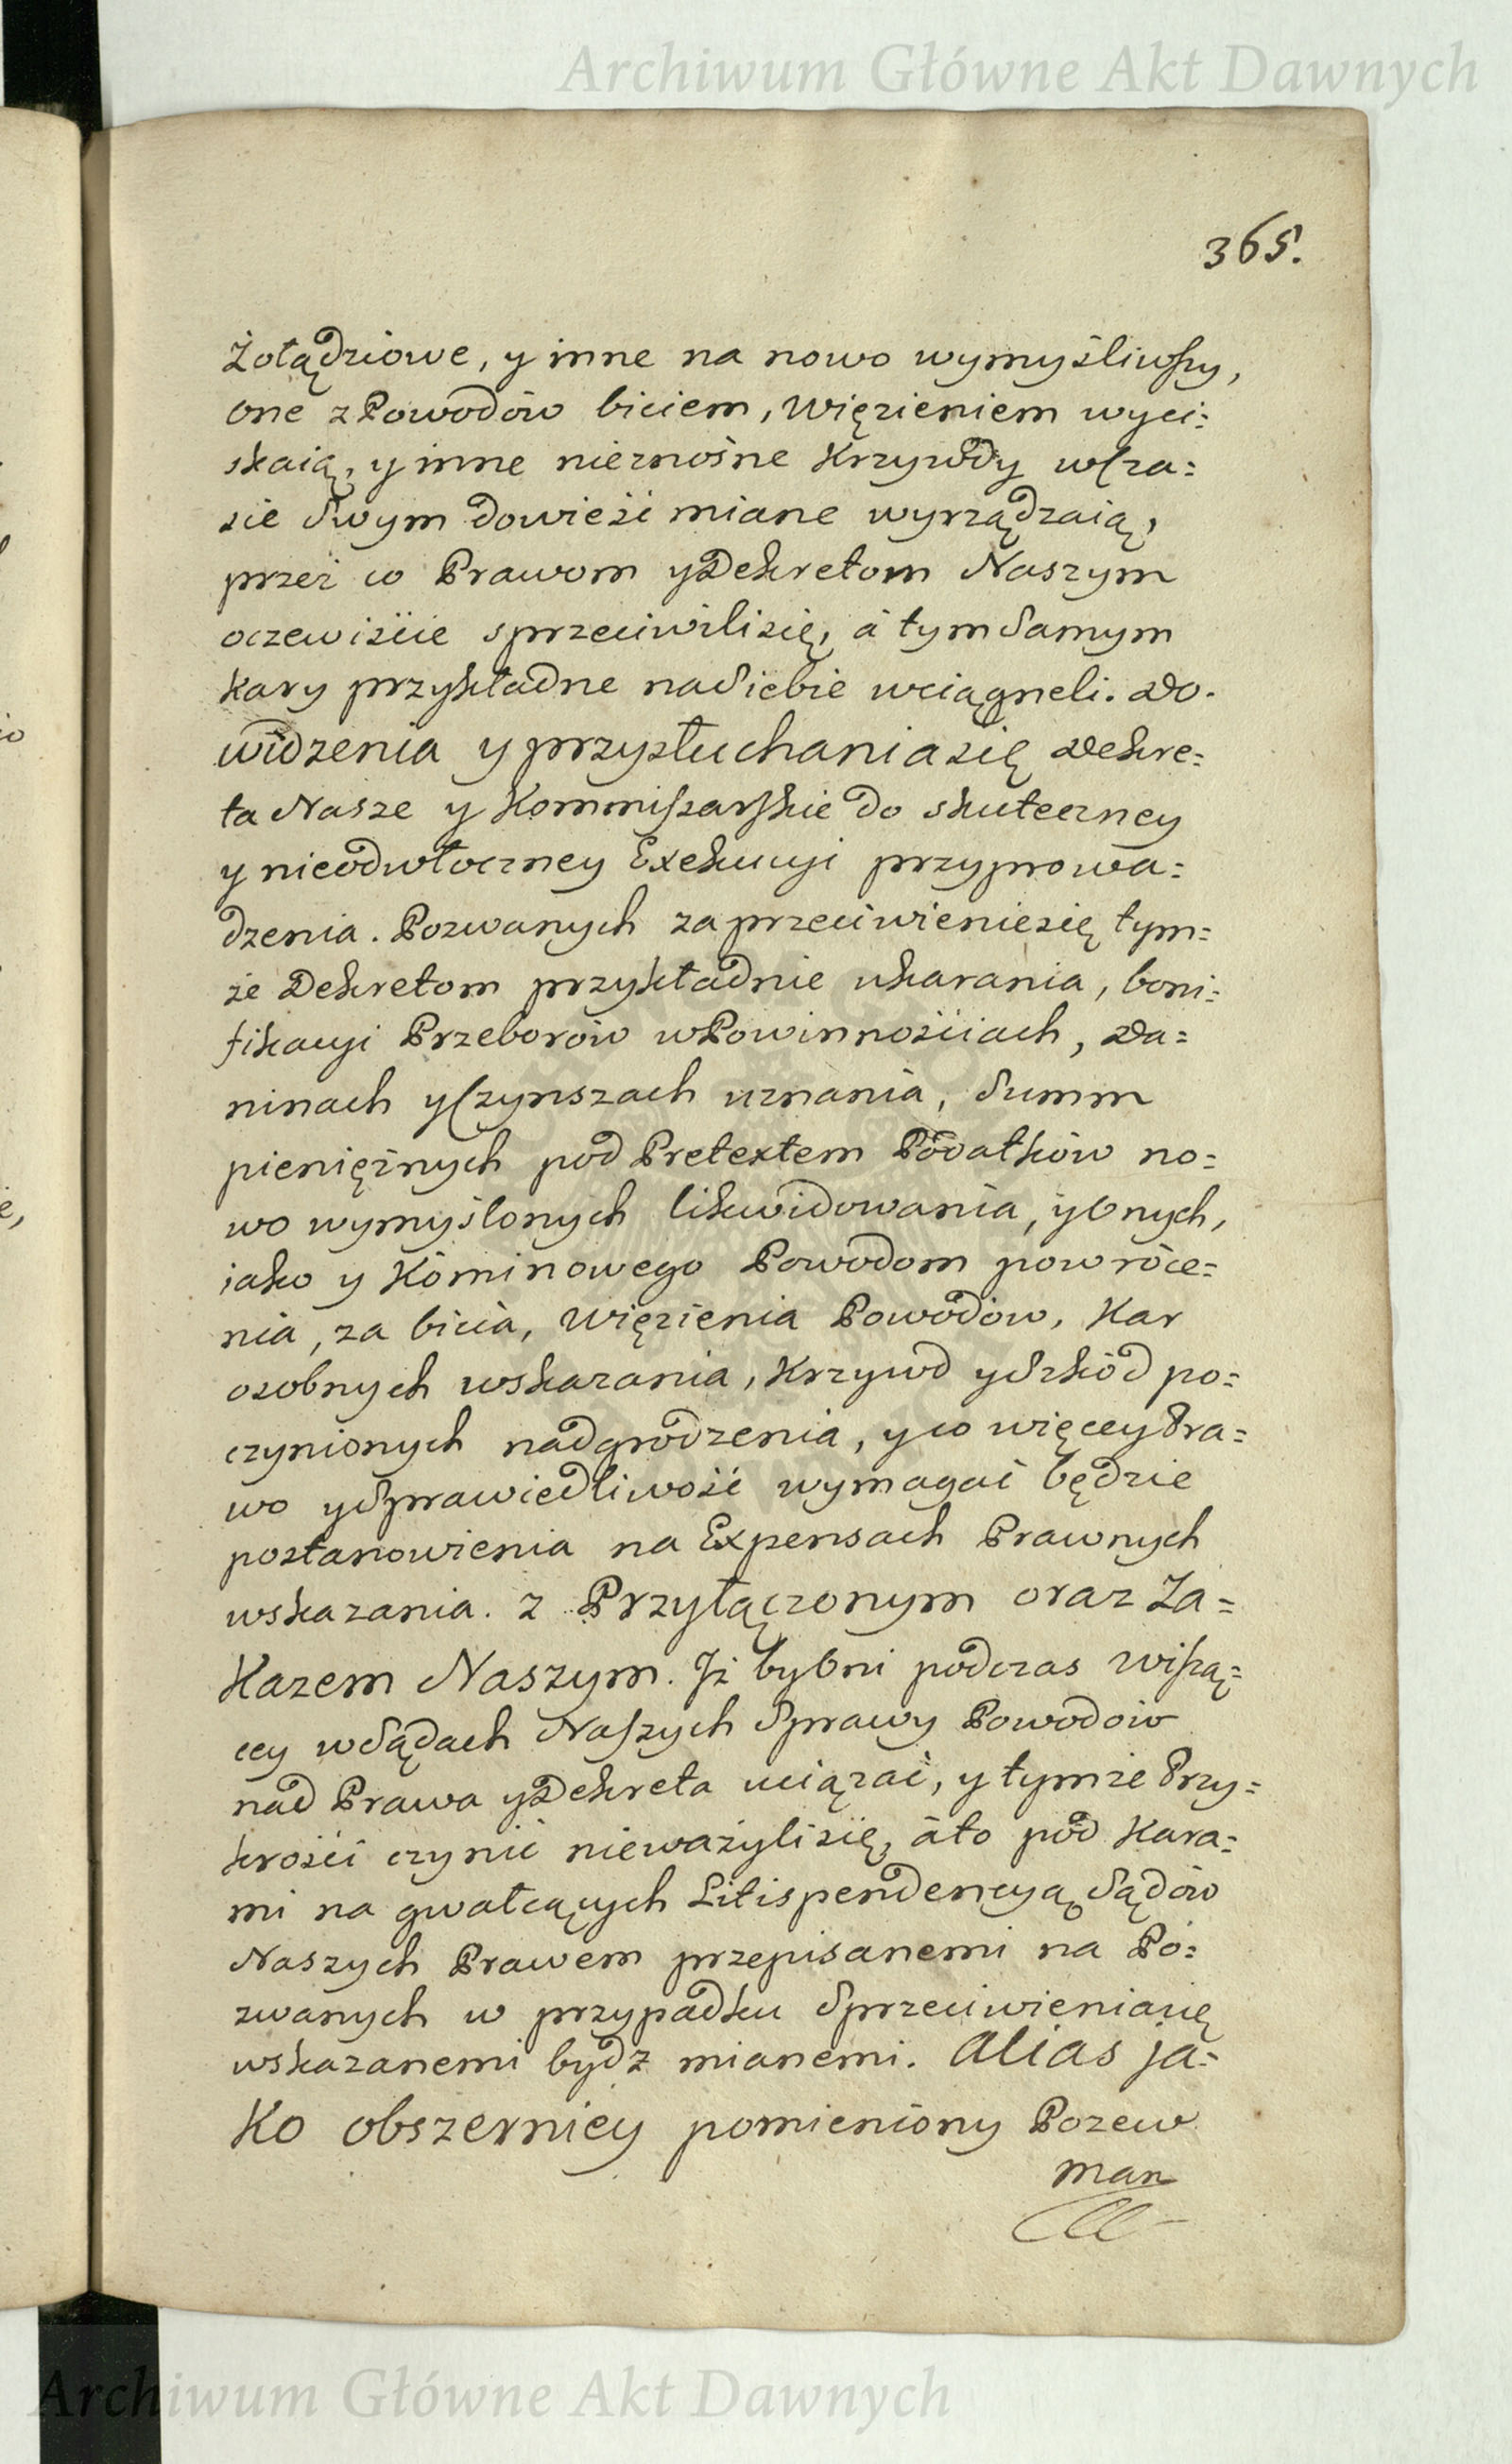 Archiwum Główne Akt Dawnych
365.
Żołądziowe, y inne na nowo wymyśliwszy,
one z Powodów biciem, Więzieniem wyci=
skaią, y inne nieznośne Krzywdy w Cza=
sie Swym dowieść miane wyrządzaią,
przez co Prawom y Dekretom Naszym
oczewiście sprzeciwili się, á tym Samym
kary przykładne na Siebie wciągneli. Do.
widzenia y przysłuchania się Dekre=
ta Nasze y Kommissarskie do skuteczney
y nieodwłoczney Exekucyi przyprowa=
dzenia. Pozwanych za przeciwienie się tym=
że Dekretom przykładnie ukarania, boni=
fikacyi Przeborów w Powinnościach, Da=
ninach y Czynszach uznania, Summ
pieniężnych pod Pretextem Podatków no=
wo wymyślonych likwidowania, y Onych,
iako y Kominowego Powodom powróce=
nia, za bicia, Więzienia Powodów, Kar
osobnych wskazania, Krzywd y Szkód po=
czynionych nadgrodzenia, y co więcey Pra=
wo y Sprawiedliwość wymagać będzie
postanowienia na Expensach Prawnych
wskazania. z Przyłączonym oraz Za=
Kazem Naszym. Jż by Oni podczas Wiszą=
cey w Sądach Naszych Sprawy Powodów
nad Prawa y Dekreta uciążać, y tymże Przy=
krości czynić nieważyli się, á to pod Kara=
mi na gwałcących Litispendencyą Sądów
Naszych Prawem przepisanemi na Po=
zwanych w przypadku Sprzeciwienia się
wskazanemi bydź mianemi. Alias ja=
Ko obszerniey pomieniony Pozew
man
Archiwum Główne Akt Dawnych